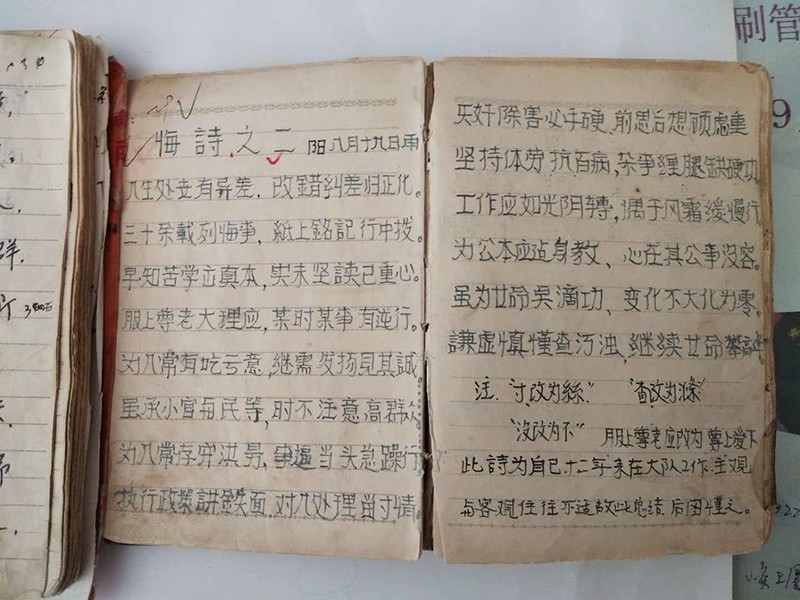 悔詩之二 阳八月十九日雨
人生处世有异差,改錯糾差归正化。
三十余載列悔事,紙上銘記行中拨。
早知苦学立真本,实未坚读已重心。
服上尊老大理应,某时某事有逆行。
为人常有吃亏意,继需发扬見其誠。
虽承小官与民等,时不注意高群众
为人常存守洪易,事逼当头急躁行
执行政策讲鉄面,对人处理留寸情。
灭奸除害必手硬,前思后想顾虑重
坚持体劳抗百病,茶事经腿缺硬功
工作应如光阴轉,偶于风霜缓慢行
为公本应适身教、心在其公事没容。
虽为廿命吴滴功、变化不大化为零。
謙虚慎懂查污浊,继续廿命攀高
注.“寸改为絲.” “查改为滌”
“没改为不” 服上尊老应改为 尊上爱下
此詩为自已十二年来在大队工作.主观
与客观往往不适故以此总结 后因懂之。
刷管
9